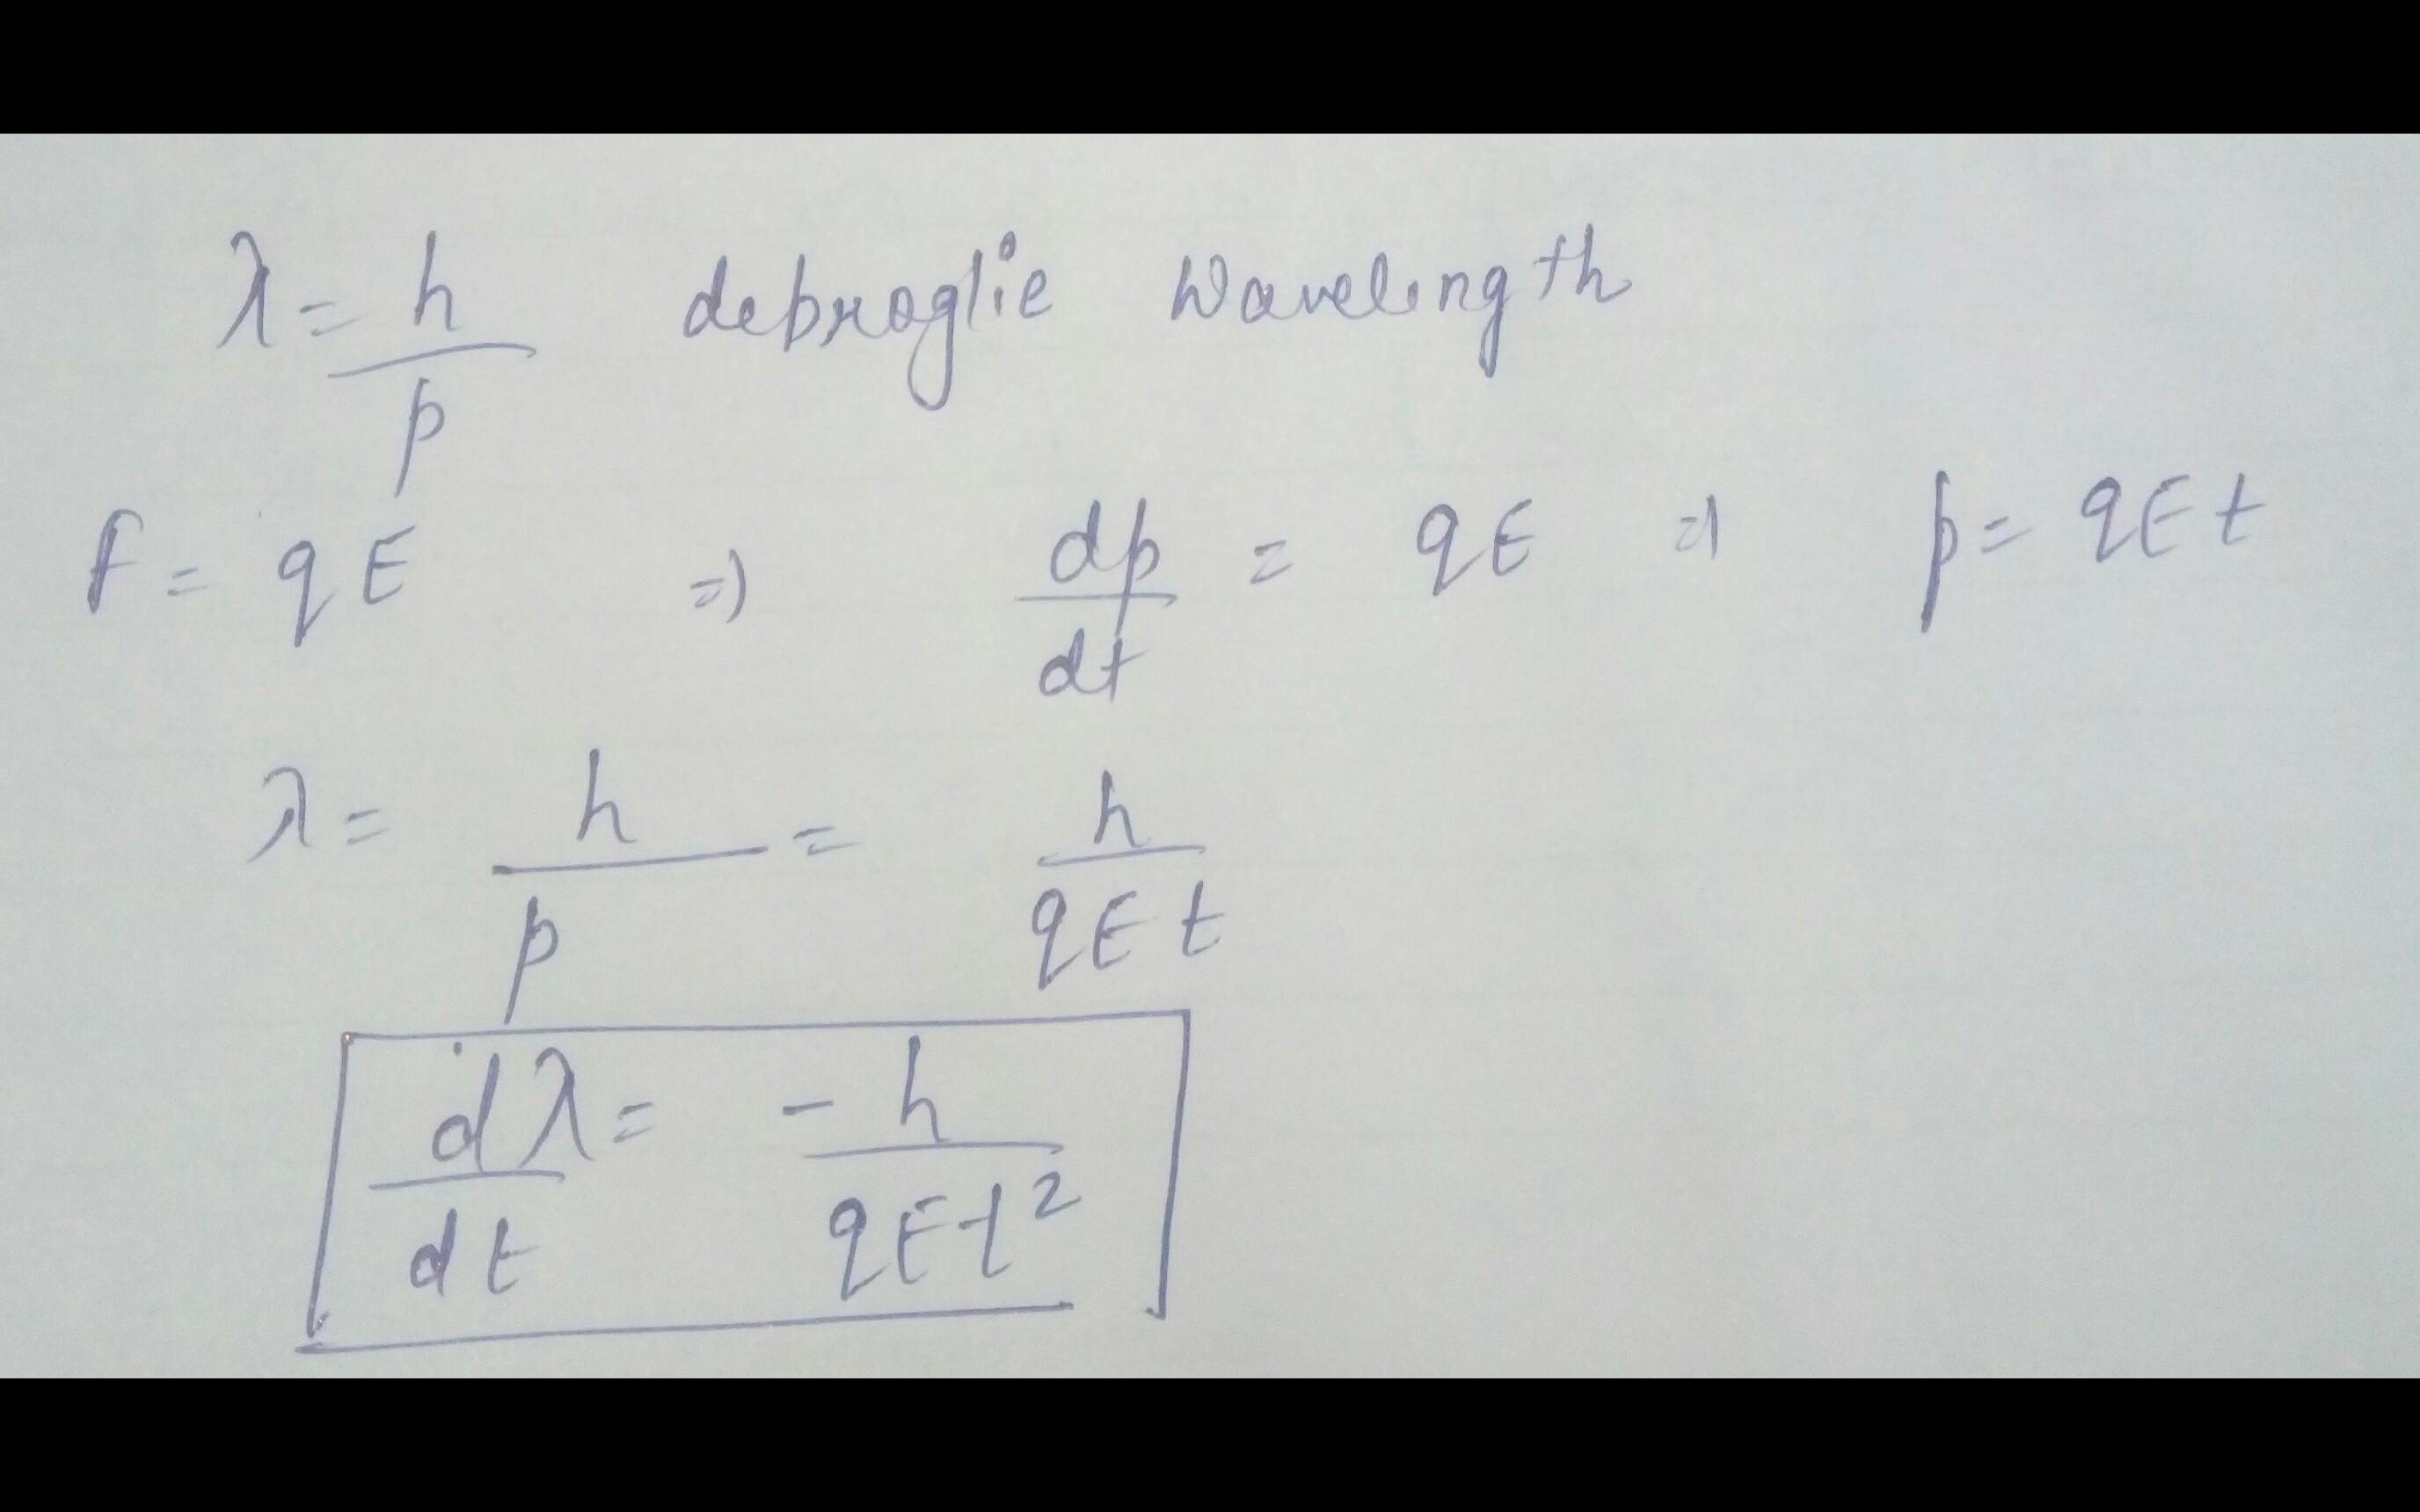 λ = h/p debroglie Wavelength
F = qE => dp/dt = qE => p = qEt
λ = h/p = h/qEt
dλ/dt = -h/qEt²